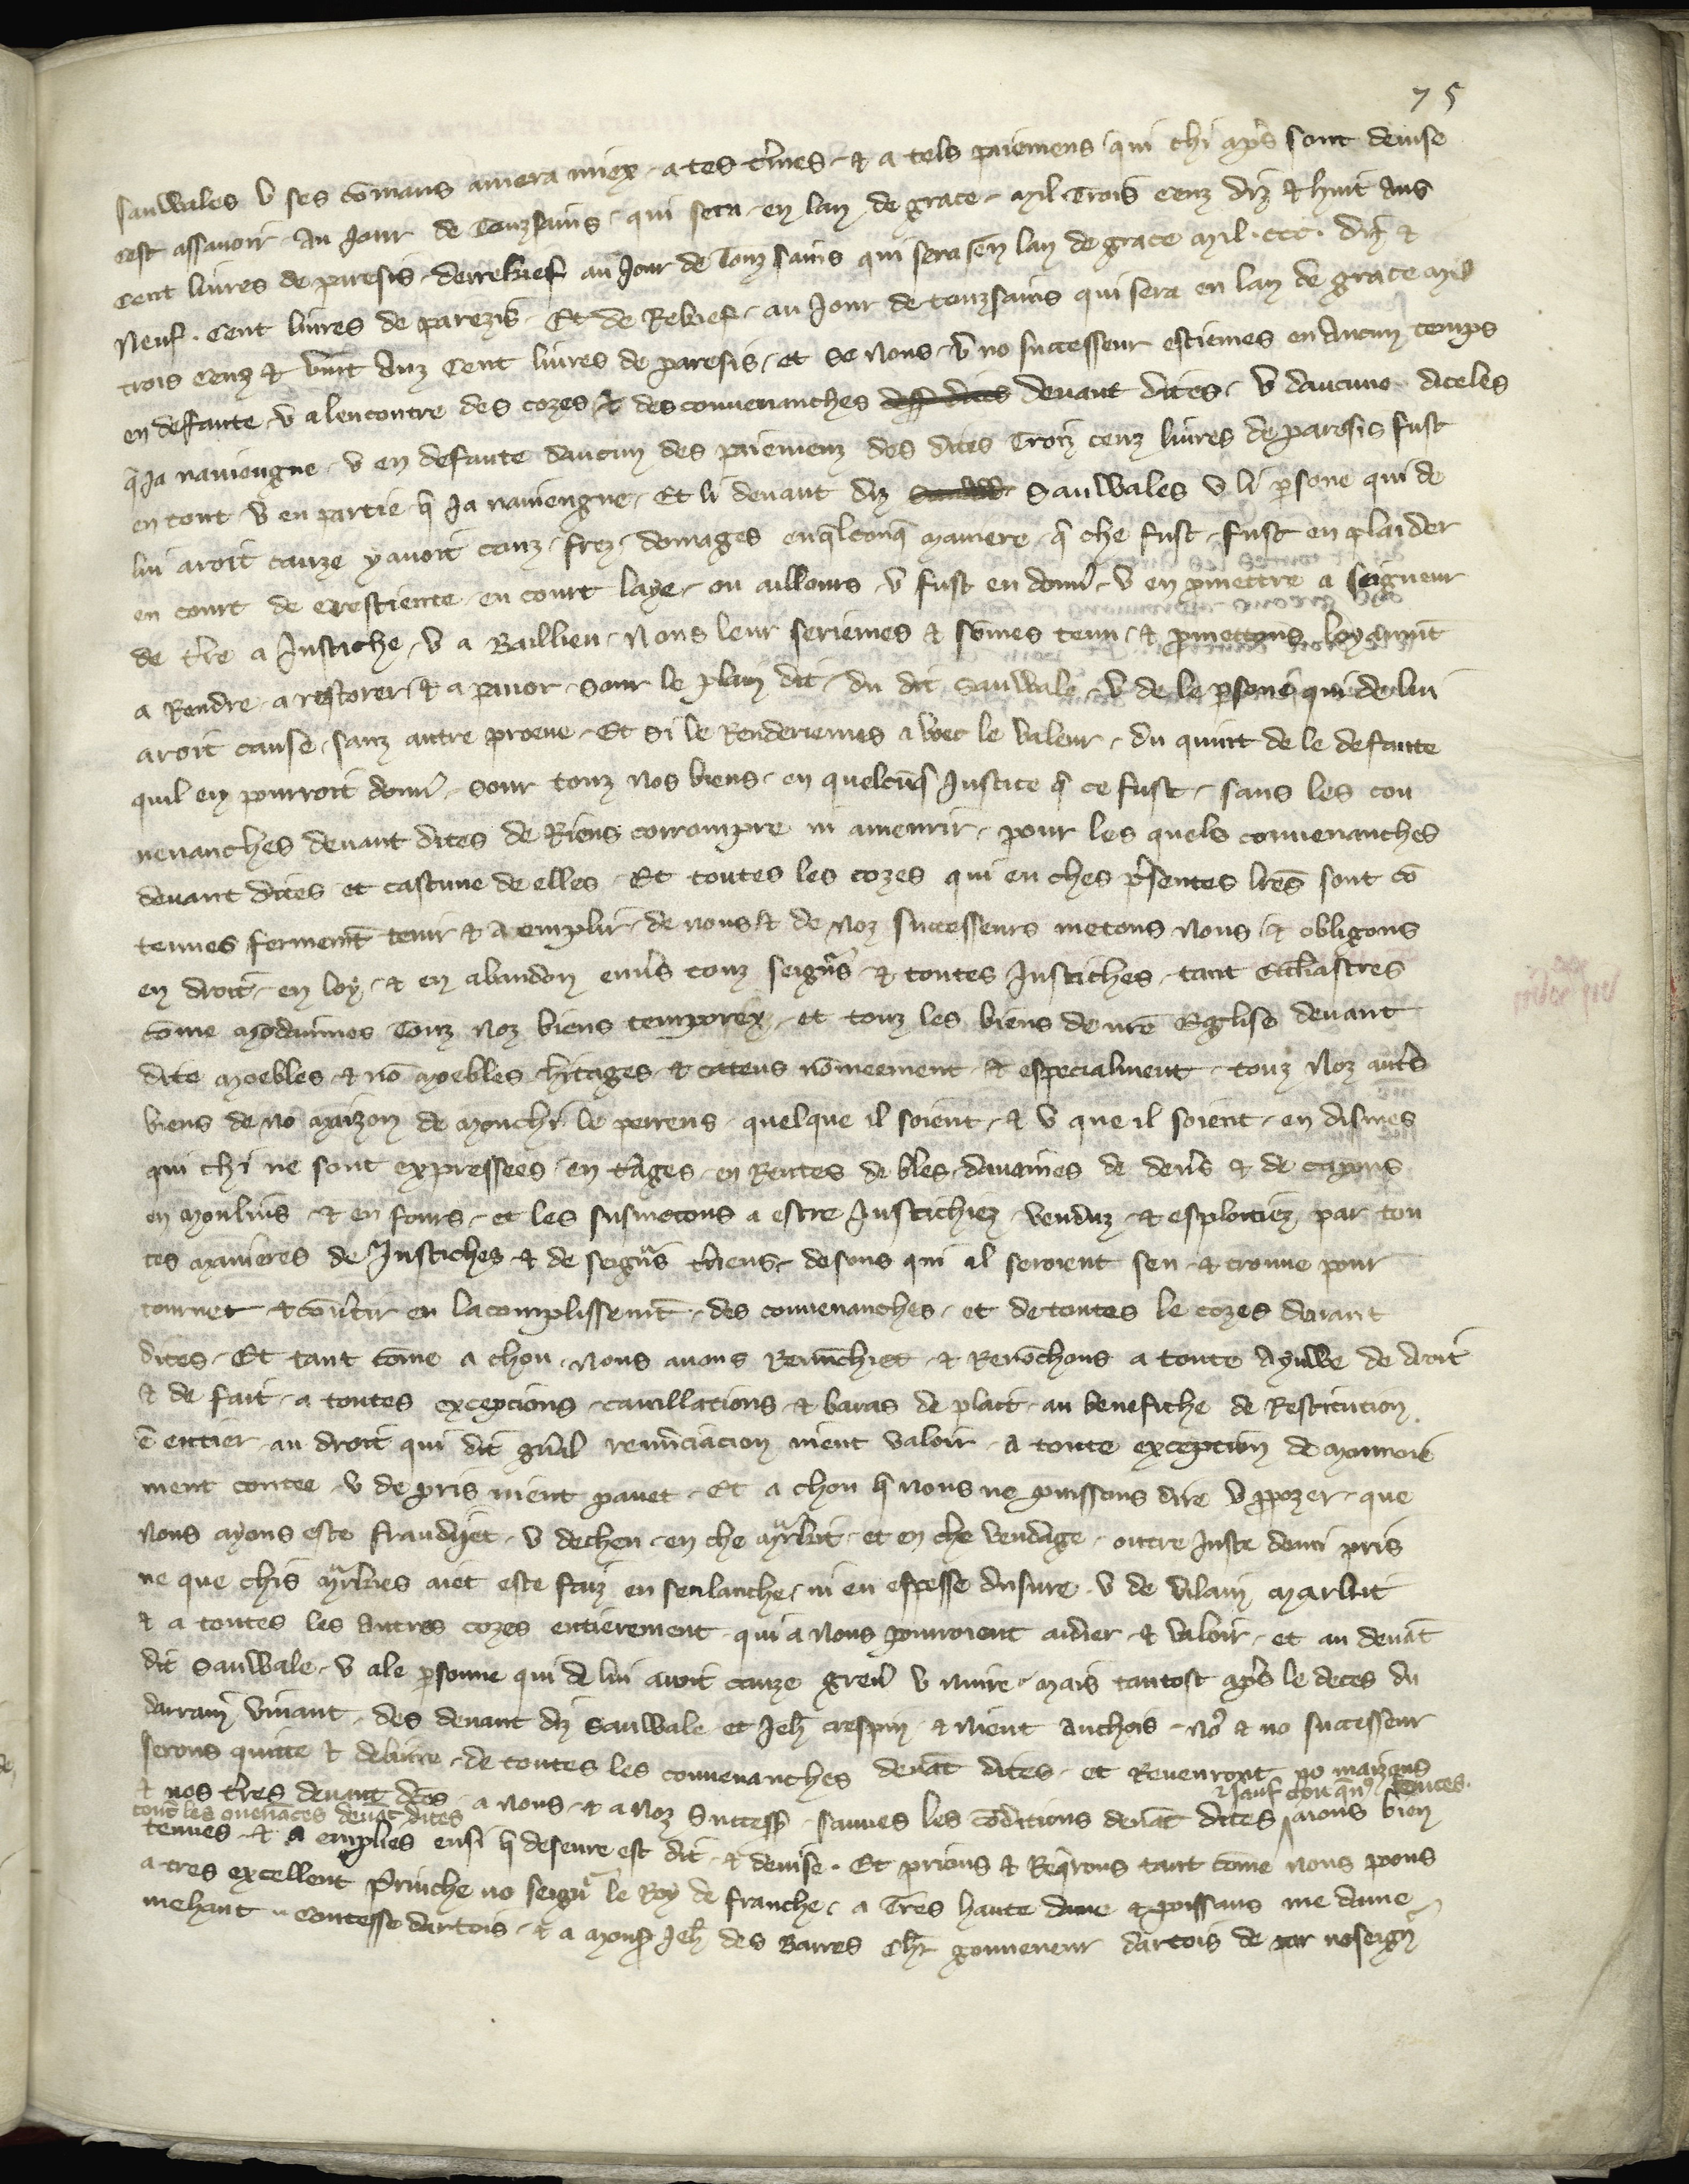 75
sauwales v ses cōmans amera miex a tes t'mes & a tels paiemens qui chi ap's sont deuise
cest assauoir au Jour de Touzsains qui sera en lan de grace mil Trois cenz diz & huit ans
cent liures de paresis derrekief au Jour de Touz sains qui sera en lan de grace mil .ccc. diz &
Neuf . cent liures de parezis Et de Rekief au Jour de touzsains qui sera en lan de grace mil
trois cenz & vint anz Cent liures de paresis et se nous v no successeur estiemes en aucun temps
en deffaute v alencontre des cozes & des conuenanches deuant dites v daucune diceles
q̄ Ja nauiengne v en defaute daucun des paiemenz des dites Troiz cenz liures de paresis fust
en tout v en partie q̄ Ja nauiengne Et li deuant diz Sauwales v li p̄sone qui de
lui aroit cauze y auoit couz frez domages en q̄lconq̄ maniere q̄ che fust fust en plaidier
en court de crestiente en court laye ou ailleurs v fust en don' v en p̄mettre a seigneur
de t're a Justiche v a Baillieu nous leur seriemes & sōmes tenu & p̄mettons loyaumt
a Rendre a restorer & a paier sour le plain dit du dit Sauwale v de le p̄sone qui de lui
aroit cause sanz autre proeue Et si le Renderiemes auoec le valeur du quint de le defaute
quil en pourroit don' sour touz nos biens en quelcūq̄ Justice q̄ ce fust sans les con
uenanches deuant dites de Riens corrompre ni amenrir pour les quels conuenanches
deuant dites et castune de elles Et toutes les cozes qui en ches p̄sentes lr̄es sont cō
tenues fermemt tenir & aemplir de nous & de noz successeurs metons nous & obligons
en droit en loy & en abandon en u's touz seign's & toutes Justiches tant eccl'iastres
cōme mōdainnes Touz noz biens temporex et touz les biens de nr̄e Eglise deuant
dite moebles & nō moebles h'itages & cateus nōmeement & especialment touz noz aut's
biens de no maizon de monchi le perreus quelque il soient & v que il soient en dismes
qui chi ne sont expressees en t'ages en Rentes de bles dauaines de den's & de capons
en moulins & en fours et les susmetons a estre Justichiez venduz & esploitiez par tou
tes manieres de Justiches & de seign's t'riens desous qui il seroient seu & trouue pour
tourner & cōu'tir en lacomplissemt des conuenanches et de toutes le cozes deuant
dites Et tant cōme a chou nous auons Renūchiet & Renōchons a toute Ayuwe de droit
& de fait a toutes excepcions cauillations & baras de plait au benefiche de Restitution
ē entier au droit qui dit gn'al renūciacion nient valoir a toute exception de monnoie
nient contee v de pris nient paiiet Et a chou q̄ nous ne puissons dire v p̄pozer que
nous ayons este fraudyet v decheu en che markiet et en che vendage outre Juste demi pris
ne que chis markies aiet este faiz en senlanche ni en espesse dusure v de vilain markiet
& a toutes les autres cozes entierement qui a nous pourroient aidier & valoir et au deuāt
dit Sauwale v ale p̄sonne qui de lui aroit cauze greu' v nuire mais tantost ap's le deces du
darrain viuant des deuant diz Sauwale et Jeh̄ crespin & nient anchois no' & no successeur
serons quitte & deliure de toutes les conuenanches deuāt dites et Reuenront no maizons
& nos t'res deuant d'tes a nous & a noz Successo' sauues les cōditions deuāt dites aions bien
sauf chou qn' toutes
toute les ouenāces deuāt dites
tenues & a emplies ensi q̄ deseure est dit & deuise . Et prions & Req̄rons tant cōme nous poons
a tres excellent Prinche no seign' le Roy de franche a Tres haute dame & poissans me dame
mehaut Contesse dartois & a mons' Jeh̄ des Barres Ch'r gouuerneur dartois de par no seign'